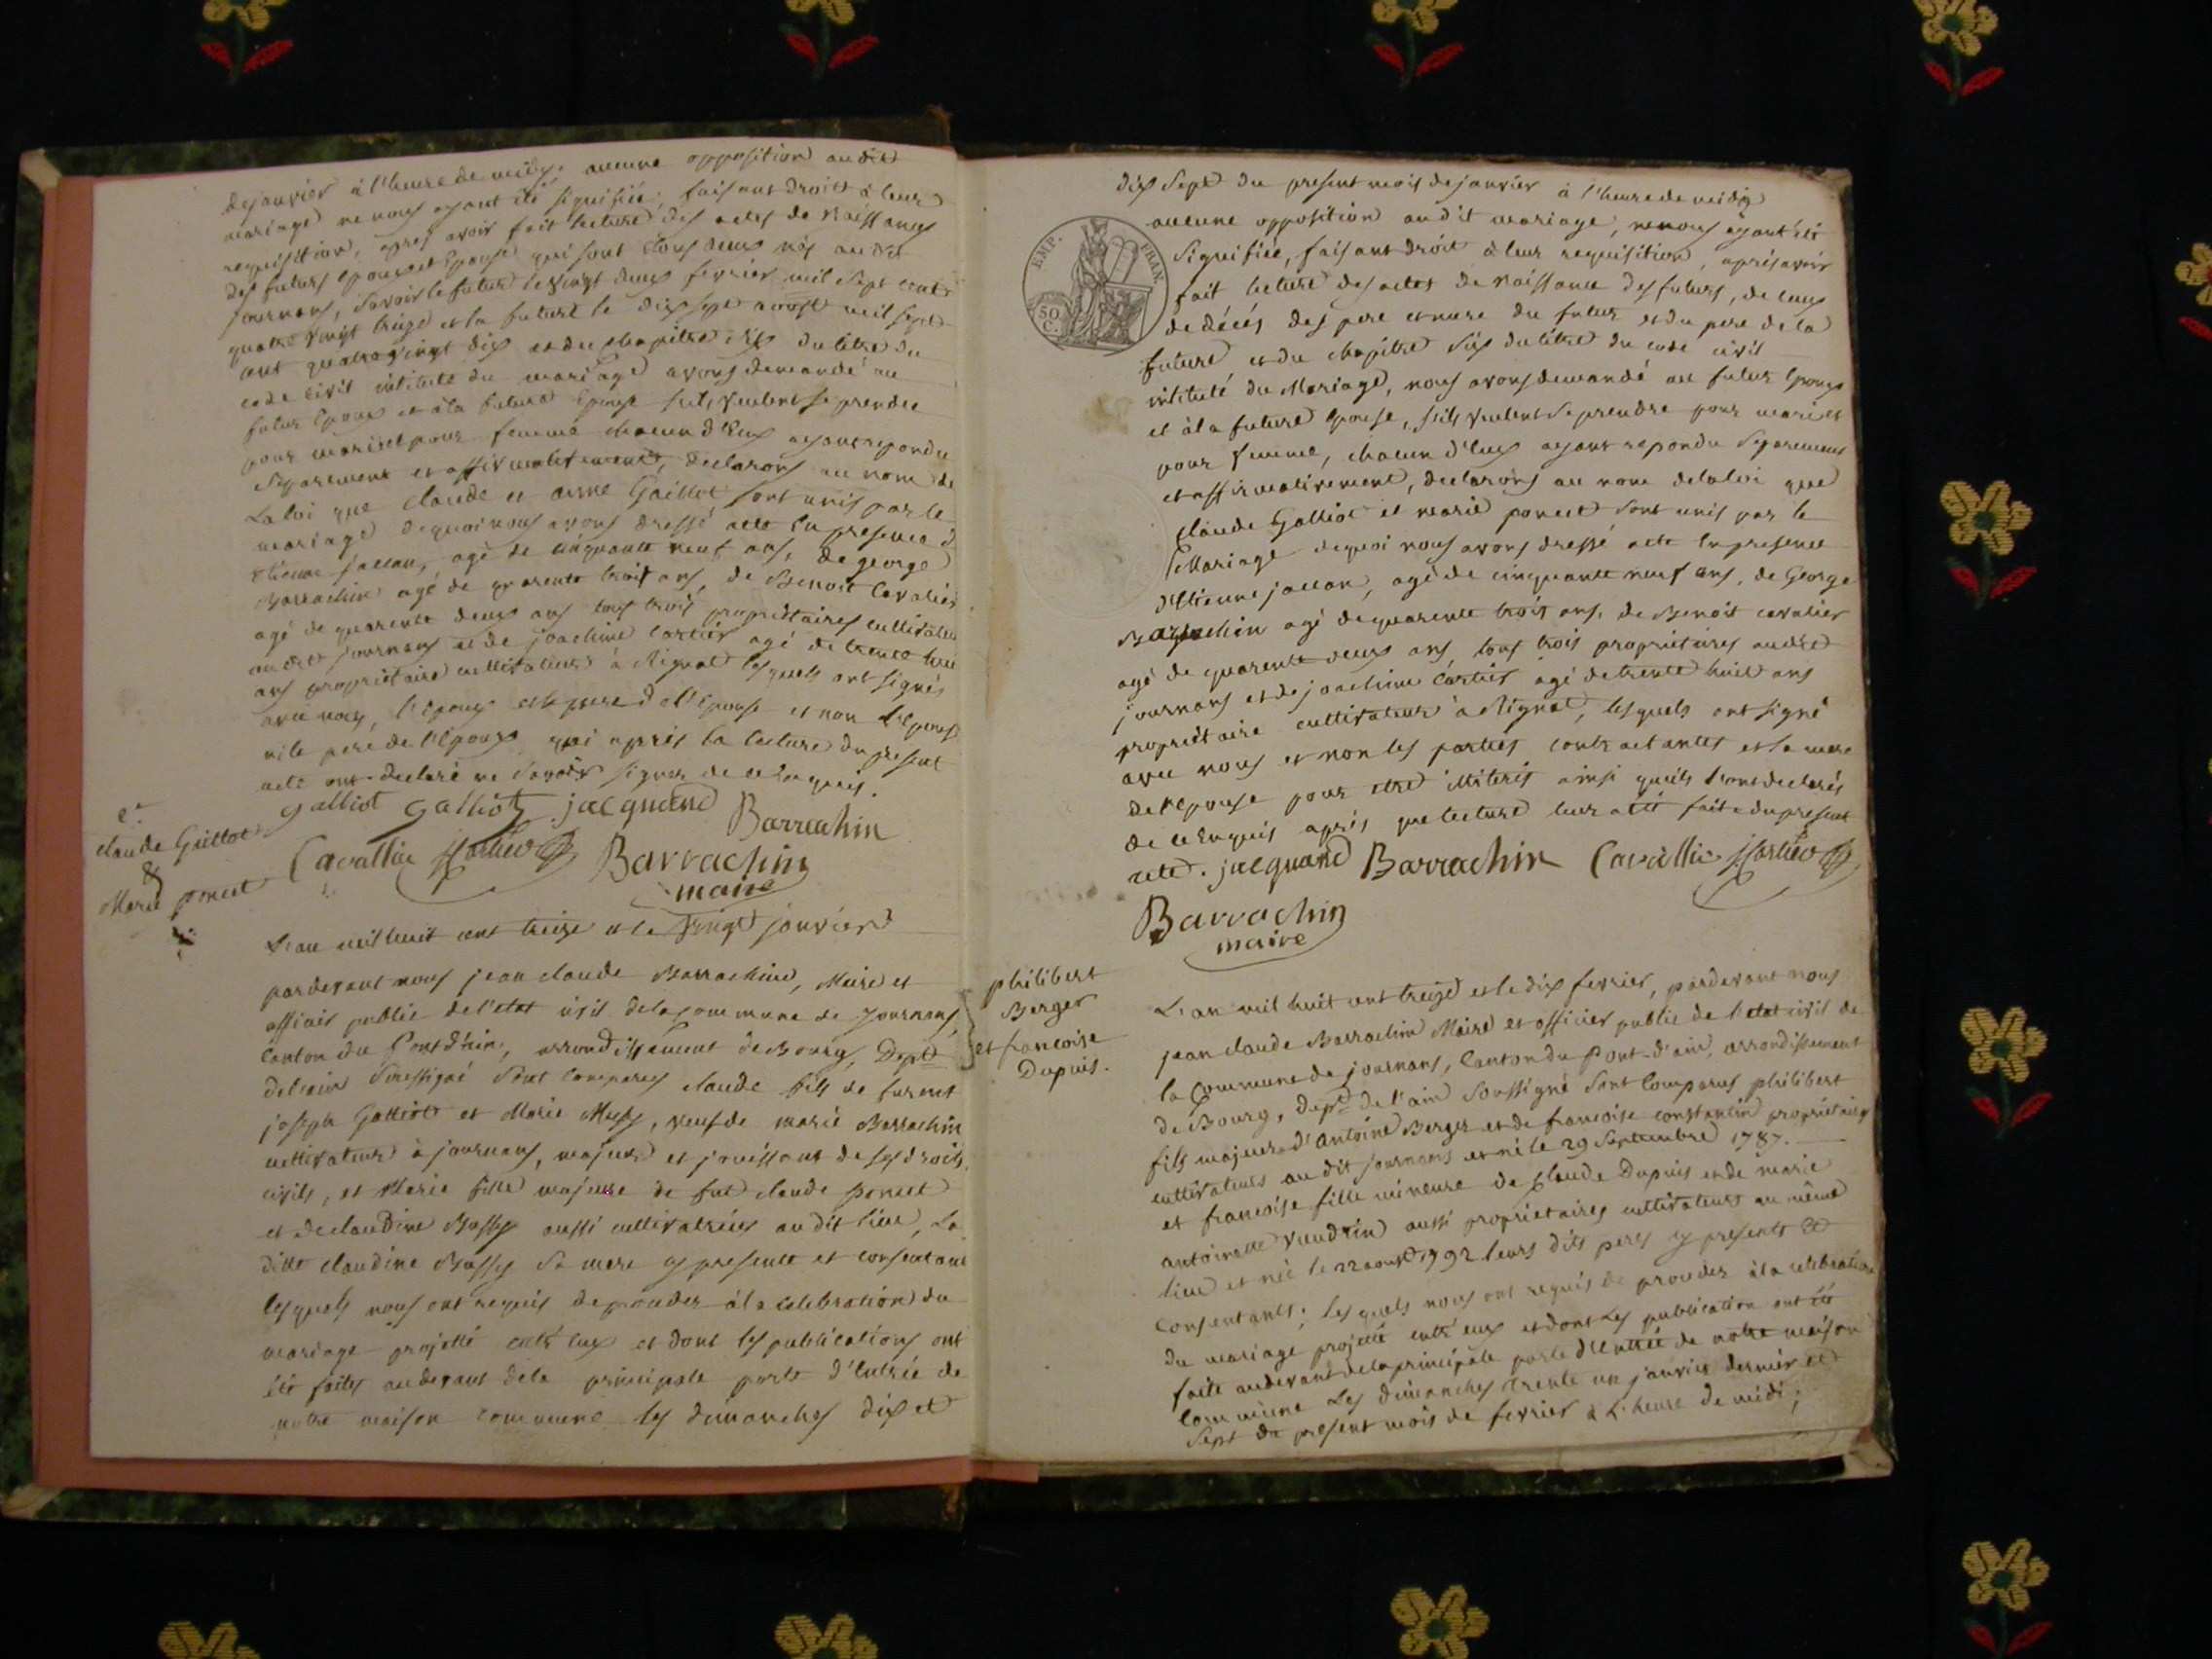 de janvier à l'heure de midy. aucune opposition audit
mariage ne nous ayant été signifiée, faisant droit à leur
requisition, apres avoir fait lecture des actes de Naissances
des futurs epoux et Epouse qui sont tous deux nés au dit
journans, savoir le futur le vingt deux fevrier mil sept cent
quatre vingt treize et la future le dix sept aoust mil sept
cent quatre vingt dix et du chapitre six du titre du
code civil intitulé du mariage avons demandé au
futur Epoux et à la future Epouse s'ils veulent se prendre
pour mari et pour femme chacun d'Eux ayant repondu
separement et affirmativement, declarons au nom de
La loi que claude et anne Galliot sont unis par le
mariage de quoi nous avons dressé acte En presence d
Etienne jacan, agé de cinquante neuf ans, de george
Barrachin agé de quarente trois ans, de Benoit Cavalier
agé de quarente deux ans tous trois proprietaires cultivateurs
audit journans et de joachim Cortier agé de trente huit
ans proprietaire cultivateur à Rignat lesquels ont signés
avec nous, l'epoux et le pere de l'Epouse et non l'Epouse
ni le pere de l'Epoux qui après la lecture du present
acte ont declaré ne savoir signer de ce Enquis.
galliot galliot jacquand Barrachin
Cavallie Cortier Barrachin
maire
claude Galliot
&
Marie poncet
L'an mil huit cent treize et le vingt janvier
pardevant nous jean claude Barrachin, Maire et
officier public de l'etat civil de la commune de Journans,
Canton du Pont d'hin, arrondissement de Bourg, Dept
de l'ain soussigné sont comparus claude fils de furent
joseph Galliot et Marie Mussy, veuf de marie Barrachin
cultivateur à journans, majeur et jouissant de ses droits
civils, et Marie fille majeure de fut claude poncet
et de claudine Bussy aussi cultivatrices audit lieu, La
ditte claudine Bussy sa mere y presente et consentant
lesquels nous ont requis de proceder à la celebration du
mariage projetté entr'eux et dont les publications ont
été faites au devant de la principale porte d'Entrée de
notre maison commune les dimanches dix et
dix Sept du present mois de janvier à l'heure de midy
EMP. FRAN.
50 C.
aucune opposition audit mariage, ne nous ayant été
signifiée, faisant droit à leur requisition, après avoir
fait lecture des actes de Naissance des futurs, de ceux
de décés des pere et mere du futur et du pere de la
future et du chapitre six du titre du code civil
intitulé du Mariage, nous avons demandé au futur Epoux
et à la future Epouse, s'ils veulent se prendre pour mari et
pour femme, chacun d'eux ayant repondu separement
et affirmativement, declarons au nom de la loi que
claude Galliot et marie poncet sont unis par le
Mariage de quoi nous avons dressé acte En presence
d'Etienne jacan, agé de cinquante neuf ans, de George
Barrachin agé de quarente trois ans, de Benoit cavalier
agé de quarente deux ans, tous trois proprietaires audit
journans et de joachim Cortier agé de trente huit ans
proprietaire cultivateur à Rignat, lesquels ont signé
avec nous et non les parties contractantes et la mere
de l'epouse pour etre illiteris ainsi qu'ils l'ont declarés
de ce Enquis après que lecture leur a été faite du present
acte. jacquand Barrachin Cavallie Cortier
Barrachin
maire
philibert
Berger
et francoise
Dupuis.
L'an mil huit cent treize et le dix fevrier, pardevant nous
jean claude Barrachin Maire et officier public de l'etat civil de
la Commune de journans, Canton du Pont-d'ain, arrondissement
de Bourg, Dept de l'ain soussigné sont Comparus philibert
fils majeur d'antoine Berger et de francoise constantin proprietaires
cultivateurs audit journans et né le 29 Septembre 1787.
et francoise fille mineure de Claude Dupuis et de marie
antoinette Vaudrin aussi proprietaires cultivateurs au même
lieu et née le 22 aoust 1792 leurs dits peres y presents et
Consentants; lesquels nous ont requis de proceder à la celebration
du mariage projetté entr'eux et dont les publication ont été
faite au devant de la principale porte d'Entrée de notre maison
Commune Les dimanches trente un janvier dernier et
Sept du present mois de fevrier à l'heure de midi;